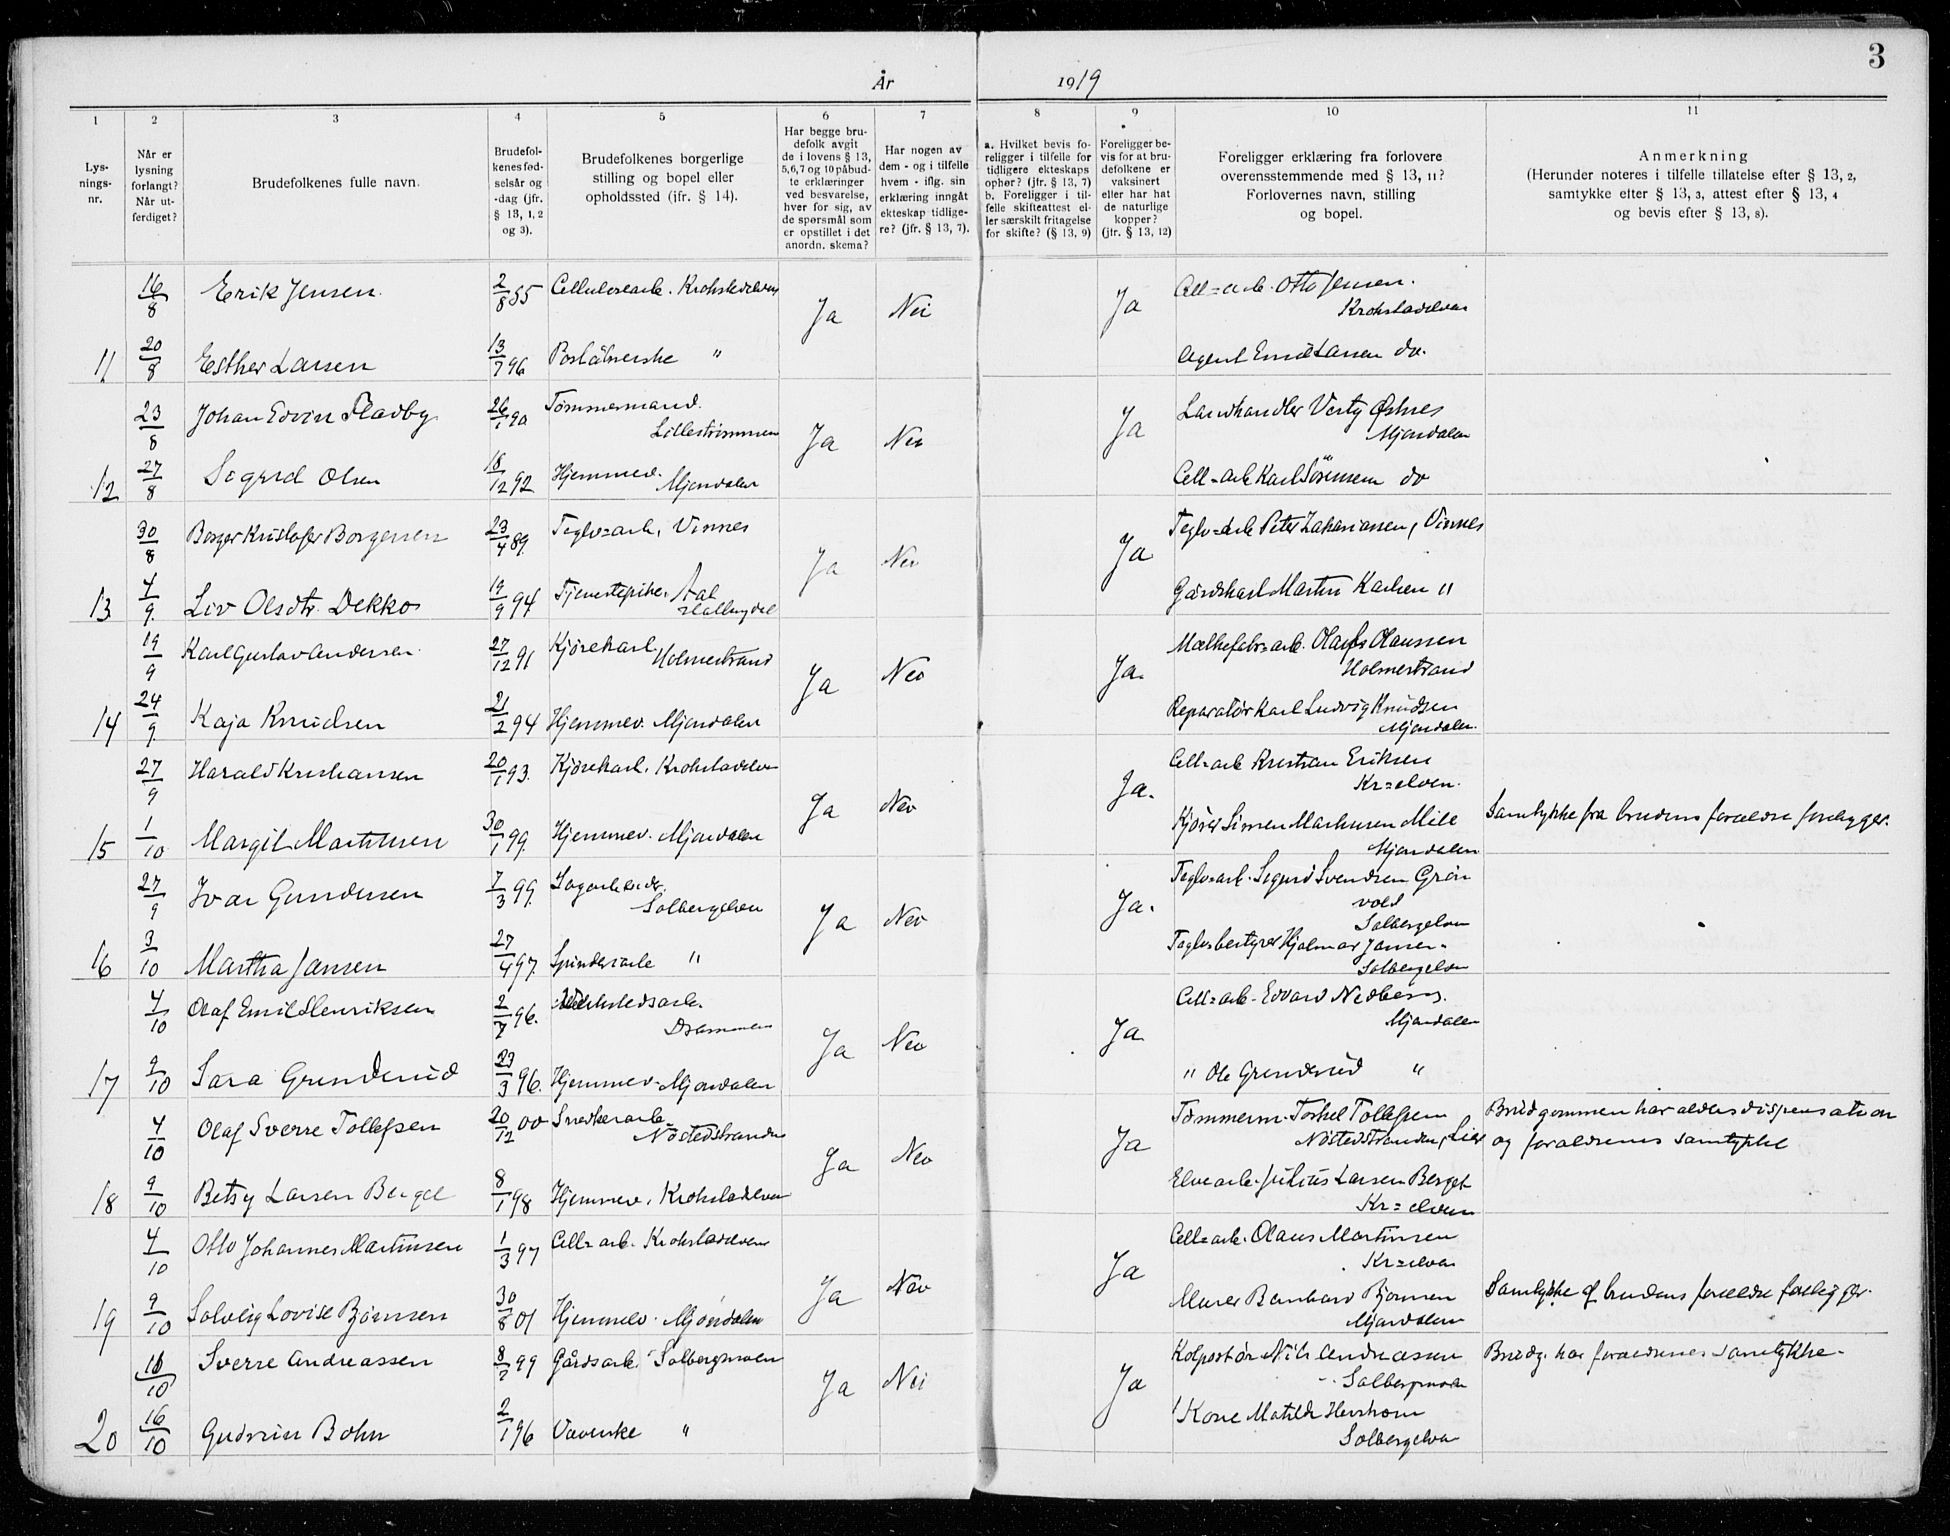 3
År 1919
1 2 3 4 5 6 7 8 9 10 11
Lys-
nings-
nr.
Når er
lysning
forlangt?
Når ut-
ferdiget?
Brudefolkenes fulle navn.
Brudefol-
kenes fød-
selsår og
-dag (jfr.
§ 13, 1, 2
og 3).
Brudefolkenes borgerlige
stilling og bopel eller
opholdssted (jfr. § 14).
Har begge bru-
defolk avgit
de i lovens § 13,
5,6,7 og 10 påbud-
te erklæringer
ved besvarelse,
hver for sig, av
de spørsmål som
er opstillet i det
anordn. skema?
Har nogen av
dem - og i tilfelle
hvem - iflg. sin
erklæring inngått
ekteskap tidlige-
re? (jfr. § 13, 7).
a. Hvilket bevis fo-
religger i tilfelle for
tidligere ekteskaps
ophør? (jfr. § 13, 7)
b. Foreligger i til-
felle skifteattest el-
ler særskilt fritagelse
for skifte? (§ 13, 9)
Foreligger be-
vis for at bru-
defolkene er
vaksinert
eller har hat
de naturlige
kopper?
(jfr. § 13, 12)
Foreligger erklæring fra forlovere
overensstemmende med § 13, 11?
Forlovernes navn, stilling
og bopel.
Anmerkning
(Herunder noteres i tilfelle tillatelse efter § 13, 2,
samtykke efter § 13, 3, attest efter § 13, 4
og bevis efter § 13, 8).
16/8 Erik Jensen 2/8 55 Cellulosearb. Krokstadelven Ja Nei Ja Cell=arb. Otto Jensen.
Krokstadelven
11 20/8 Esther Larsen 13/7 96 Poståbnerske " Agent Emil Larsen do.
23/8 Johan Edvin Fladby 26/1 90 Tømmermand.
Lillestrømmen Ja Nei Ja Landhandler Østnes
Mjøndalen
12 27/8 Sigurd Olsen 18/12 92 Hjemmev. Mjøndalen Cell=arb Karl Sörensen do
30/8 Borger Kristofer Borgersen 23/4 89. Teglv=arb. Vinnes Ja Nei Ja Teglv=arb Peter Zakariassen, Vinnes
13 4/9. Liv Olsdtr. Dekko 19/9 94. Tjenestepike. Aal
Hallingdal Gårdskarl Martin Karlsen "
19/9 Karl Gustav Andersen 27/12 91 Kjørekarl.
Holmestrand Ja Nei Ja. Melkefabr=arb. Olaf Olaussen
Holmestrand
14 24/9. Kaja Knudsen 21/2 94 Hjemmev. Mjøndalen Reparatør Karl Ludvig Knudsen
Mjøndalen.
27/9 Harald Kristiansen 20/1 93. Kjørekarl. Krokstadelven Ja Nei Ja. Cell=arb Kristian Eriksen
Kr=elven.
15 1/10 Margit Martinsen 30/1 99. Hjemmev. Mjøndalen Kjører Simen Markusen Mile
Mjøndalen Samtykke fra brudens foreldre foreligger.
27/9 Ivar Gundersen 7/3 99. Sagarbeider.
Solbergelven Ja Nei Ja. Teglv=arb. Sigurd Svendsen Grøn
vold
Solbergelven
16 3/10 Martha Jansen 27/4 97. Spinderiarb " Teglv.bestyrer Hjalmar Jansen
Solbergelven
4/10 Olaf Emil Henriksen 2/7 96. Verkstedsarb.
Drammen Ja Nei Ja Cell=arb. Edvard Nedberg.
Mjøndalen
17 9/10 Sara Grinderud 23/3 96. Hjemmev. Mjøndalen " Ole Grinderud "
4/10 Olaf Sverre Tollefsen 20/12 00 Snedkerarb.
Nøstedstranden Ja Nei Ja Tømmerm. Torkel Tollefsen
Nøstedstranden, Lier Brudgommen har aldersdispensation
og forældrenes samtykke
18 9/10 Betsy Larsen Berget 8/1 98 Hjemmev. Krokstadelven Elvearb. Julius Larsen Berget
Kr=elven
4/10 Otto Johannes Martinsen 1/3 97 Cell=arb. Krokstadelven Ja Nei Ja Cell=arb. Olaus Martinsen
Kr=elven
19 9/10 Solveig Lovise Bjørnsen 30/8 01 Hjemmev. Mjøndalen Murer Bernhard Bjørnsen
Mjøndalen Samtykke af brudens foreldre foreligger.
10/10 Sverre Andreassen 8/7 99 Gårdsarb. Solbergmoen Ja Nei Ja Kolportør Nils Andreassen
Solbergmoen Brudg. har forældrenes samtykke.
20 16/10 Gudrun Bohn 2/1 96 Væverske " Kone Matilde
Solbergelven